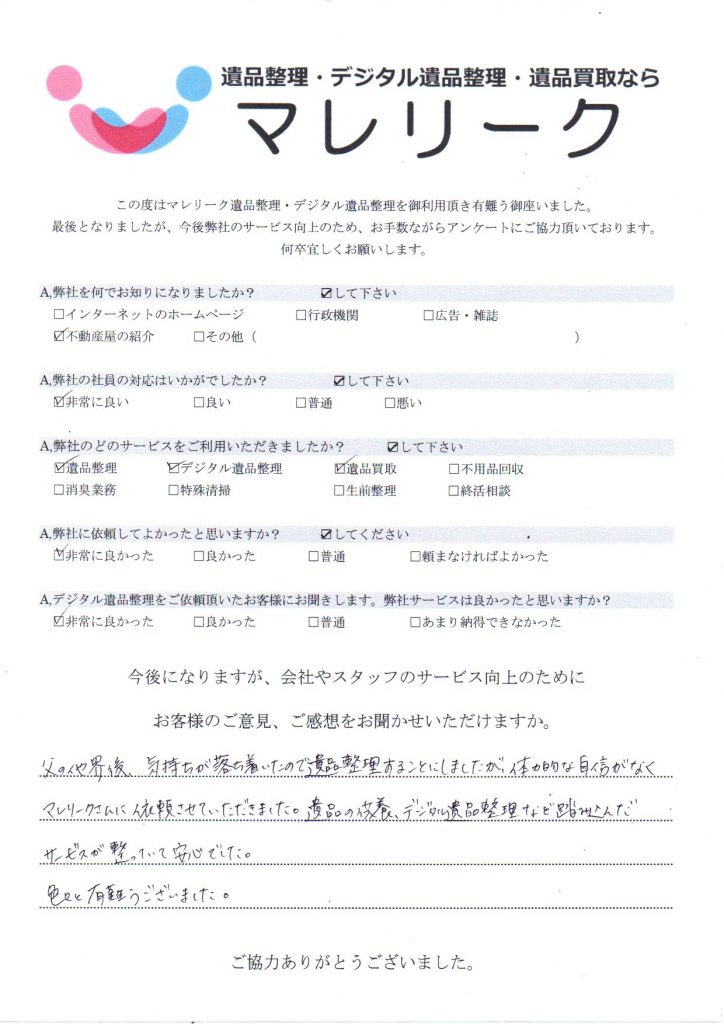 遺品整理・デジタル遺品整理・遺品買取なら
マレリーク
この度はマレリーク遺品整理・デジタル遺品整理を御利用頂き有難う御座いました。
最後となりましたが、今後弊社のサービス向上のため、お手数ながらアンケートにご協力頂いております。
何卒宜しくお願いします。
A,弊社を何でお知りになりましたか? ☑して下さい
☐インターネットのホームページ ☐行政機関 ☐広告・雑誌
☑不動産屋の紹介 ☐その他( )
A,弊社の社員の対応はいかがでしたか? ☑して下さい
☑非常に良い ☐良い ☐普通 ☐悪い
A,弊社のどのサービスをご利用いただきましたか? ☑して下さい
☑遺品整理 ☑デジタル遺品整理 ☑遺品買取 ☐不用品回収
☐消臭業務 ☐特殊清掃 ☐生前整理 ☐終活相談
A,弊社に依頼してよかったと思いますか? ☑してください
☑非常に良かった ☐良かった ☐普通 ☐頼まなければよかった
A,デジタル遺品整理をご依頼頂いたお客様にお聞きします。弊社サービスは良かったと思いますか?
☑非常に良かった ☐良かった ☐普通 ☐あまり納得できなかった
今後になりますが、会社やスタッフのサービス向上のために
お客様のご意見、ご感想をお聞かせいただけますか。
父の他界後、気持ちが落ち着いたので遺品整理することにしましたが、体力的な自信がなく
マレリークさんに依頼させていただきました。遺品の供養、デジタル遺品整理など踏み込んだ
サービスが整っていて安心でした。
色々と有難うございました。
ご協力ありがとうございました。